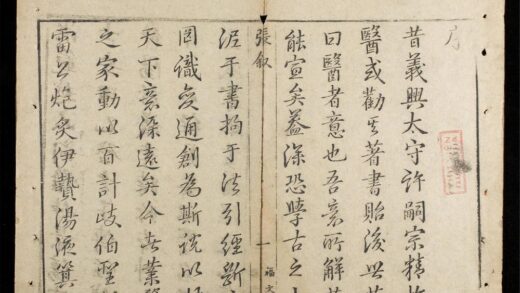 序
昔義興太守許嗣宗精於
醫或勸其著書貽後世
曰醫者意也吾意所解
能宣矣蓋深恐學古之
張叙
一
福文
泥于書拘于法引經斷
罔識變通創為斯說以
天下意深遠矣今世業
之家動以百計岐伯聖
雷公炮炙伊贄湯液箕